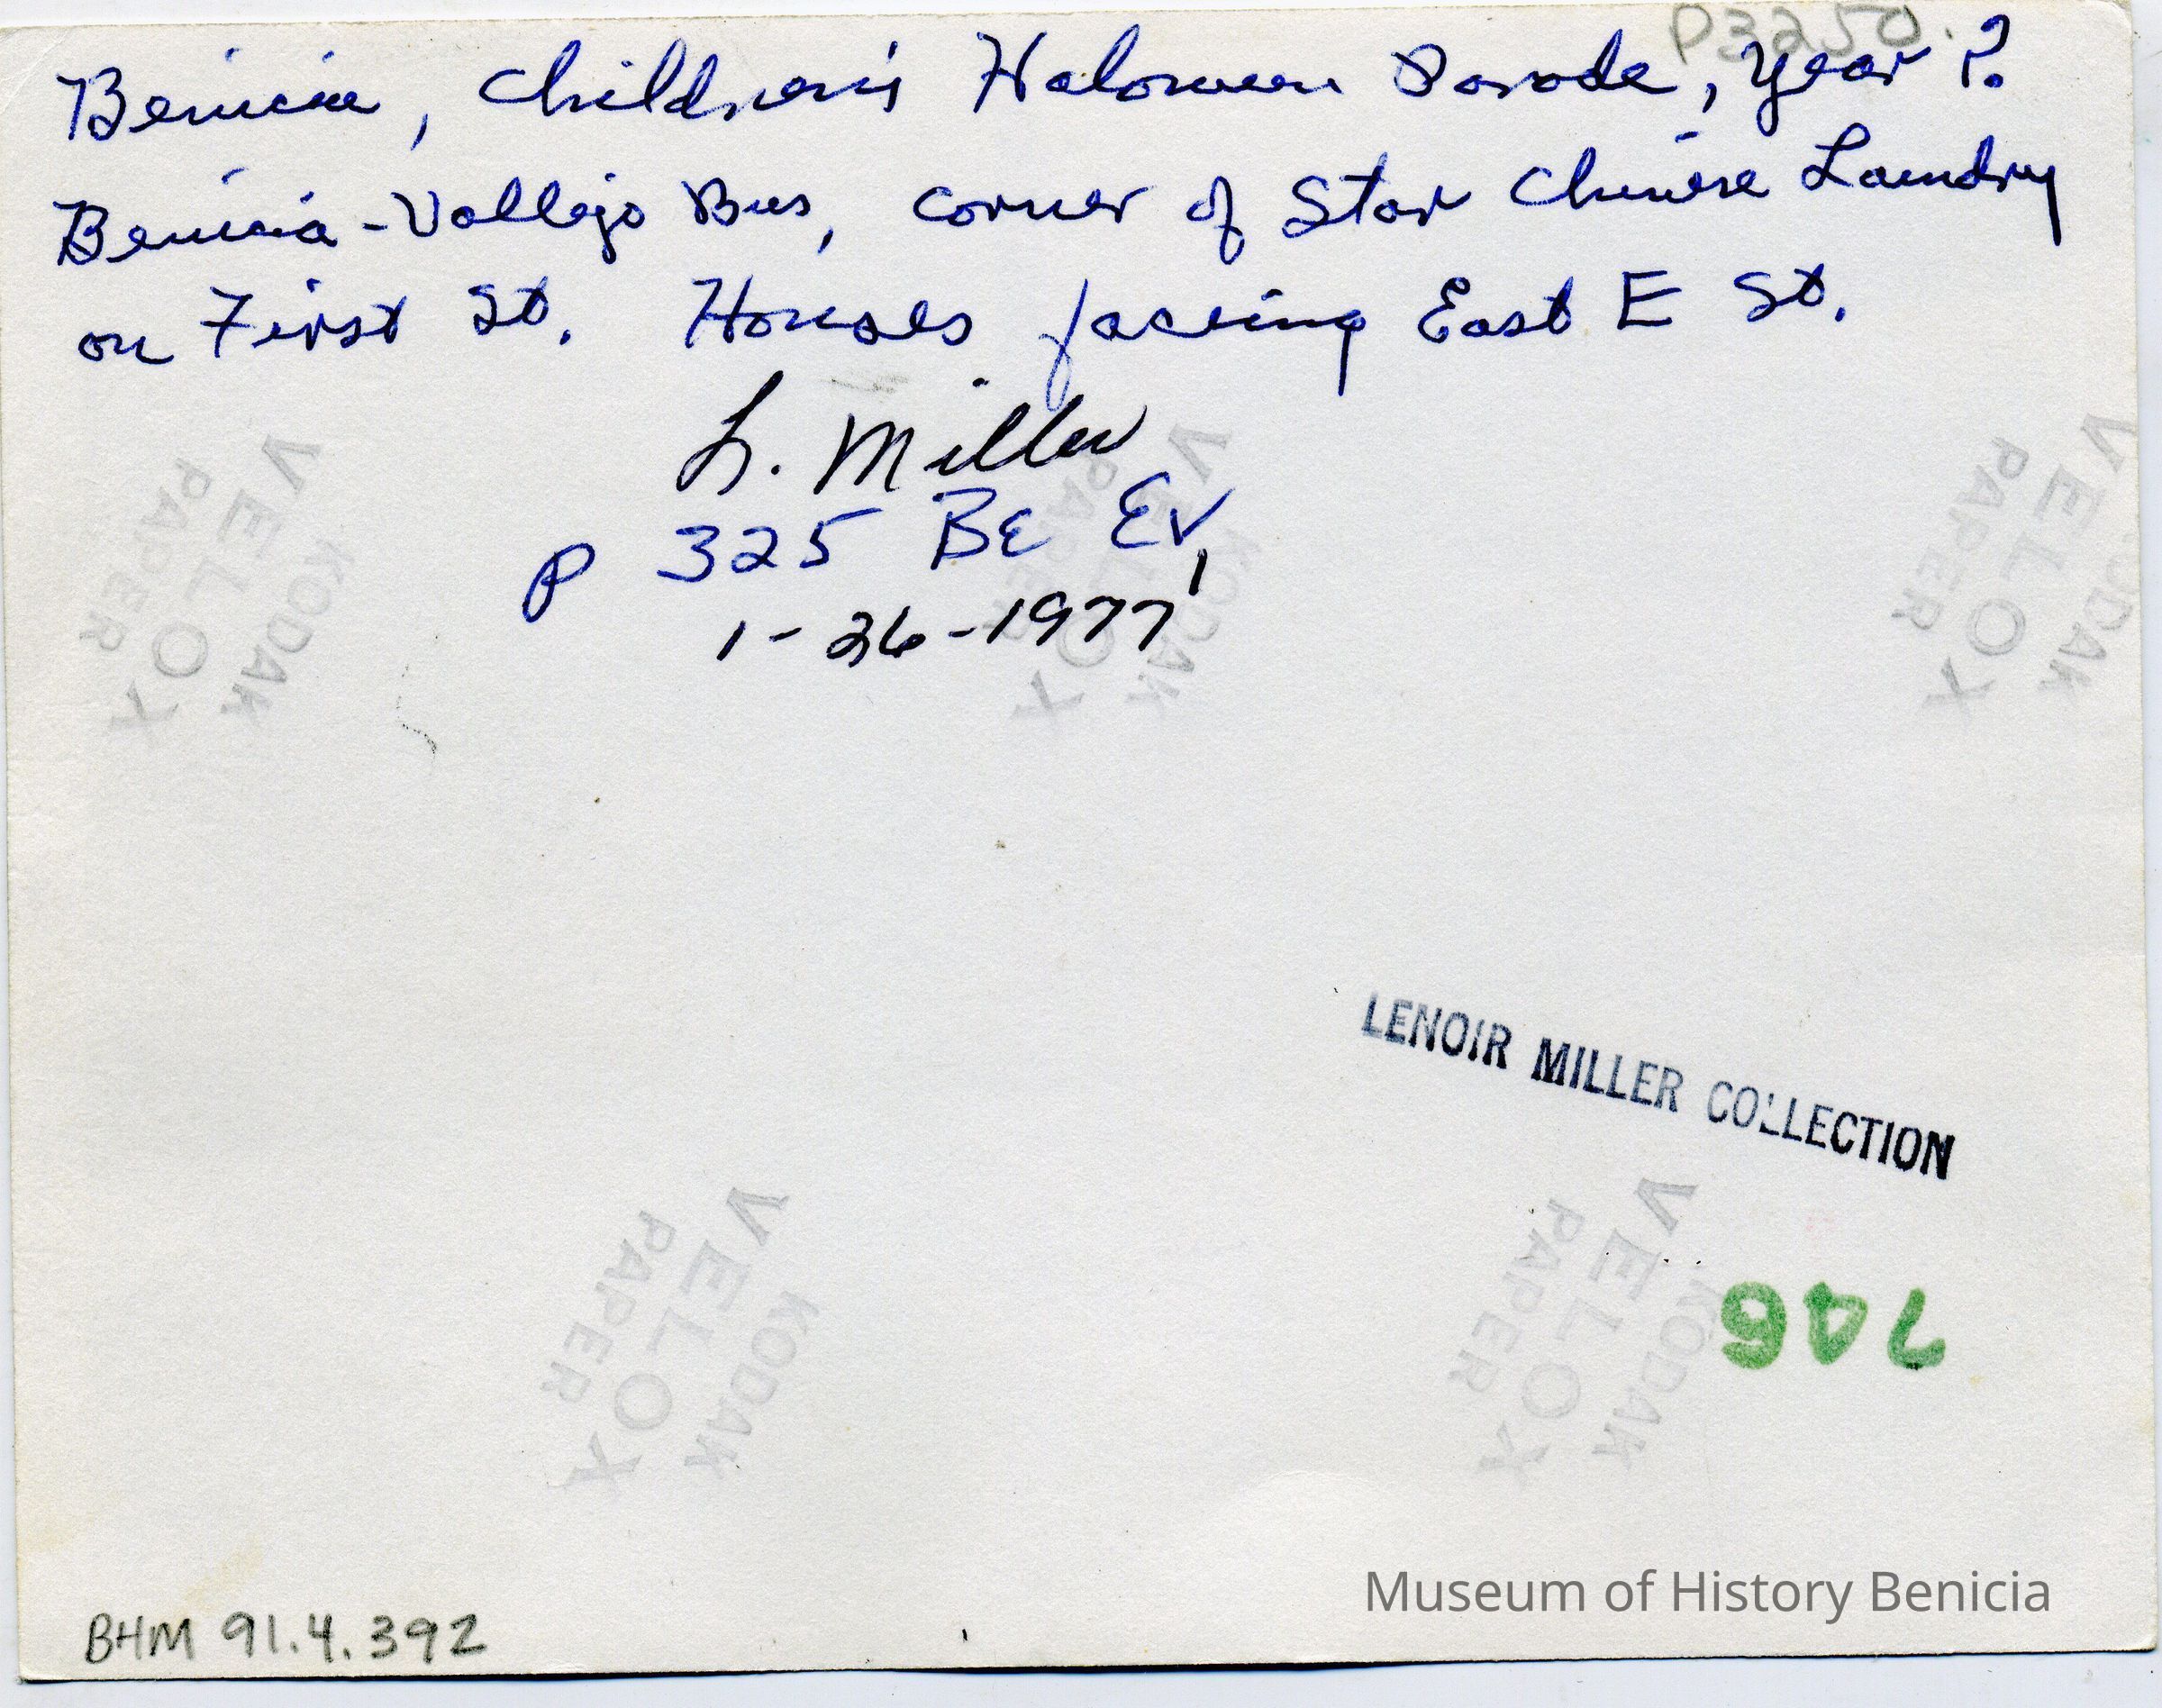 P3250.
Benicia, Children's Haloween Parade, Year?
Benicia-Vallejo Bus, corner of Star Chinese Laundry
on First St. Houses facing East E St.
L. Miller
P 325 BE EV
1-26-1977
VELOX
KODAK
PAPER
VELOX
KODAK
PAPER
VELOX
KODAK
PAPER
LENOIR MILLER COLLECTION
VELOX
KODAK
PAPER
VELOX
KODAK
PAPER
746
Museum of History Benicia
BHM 91.4.392